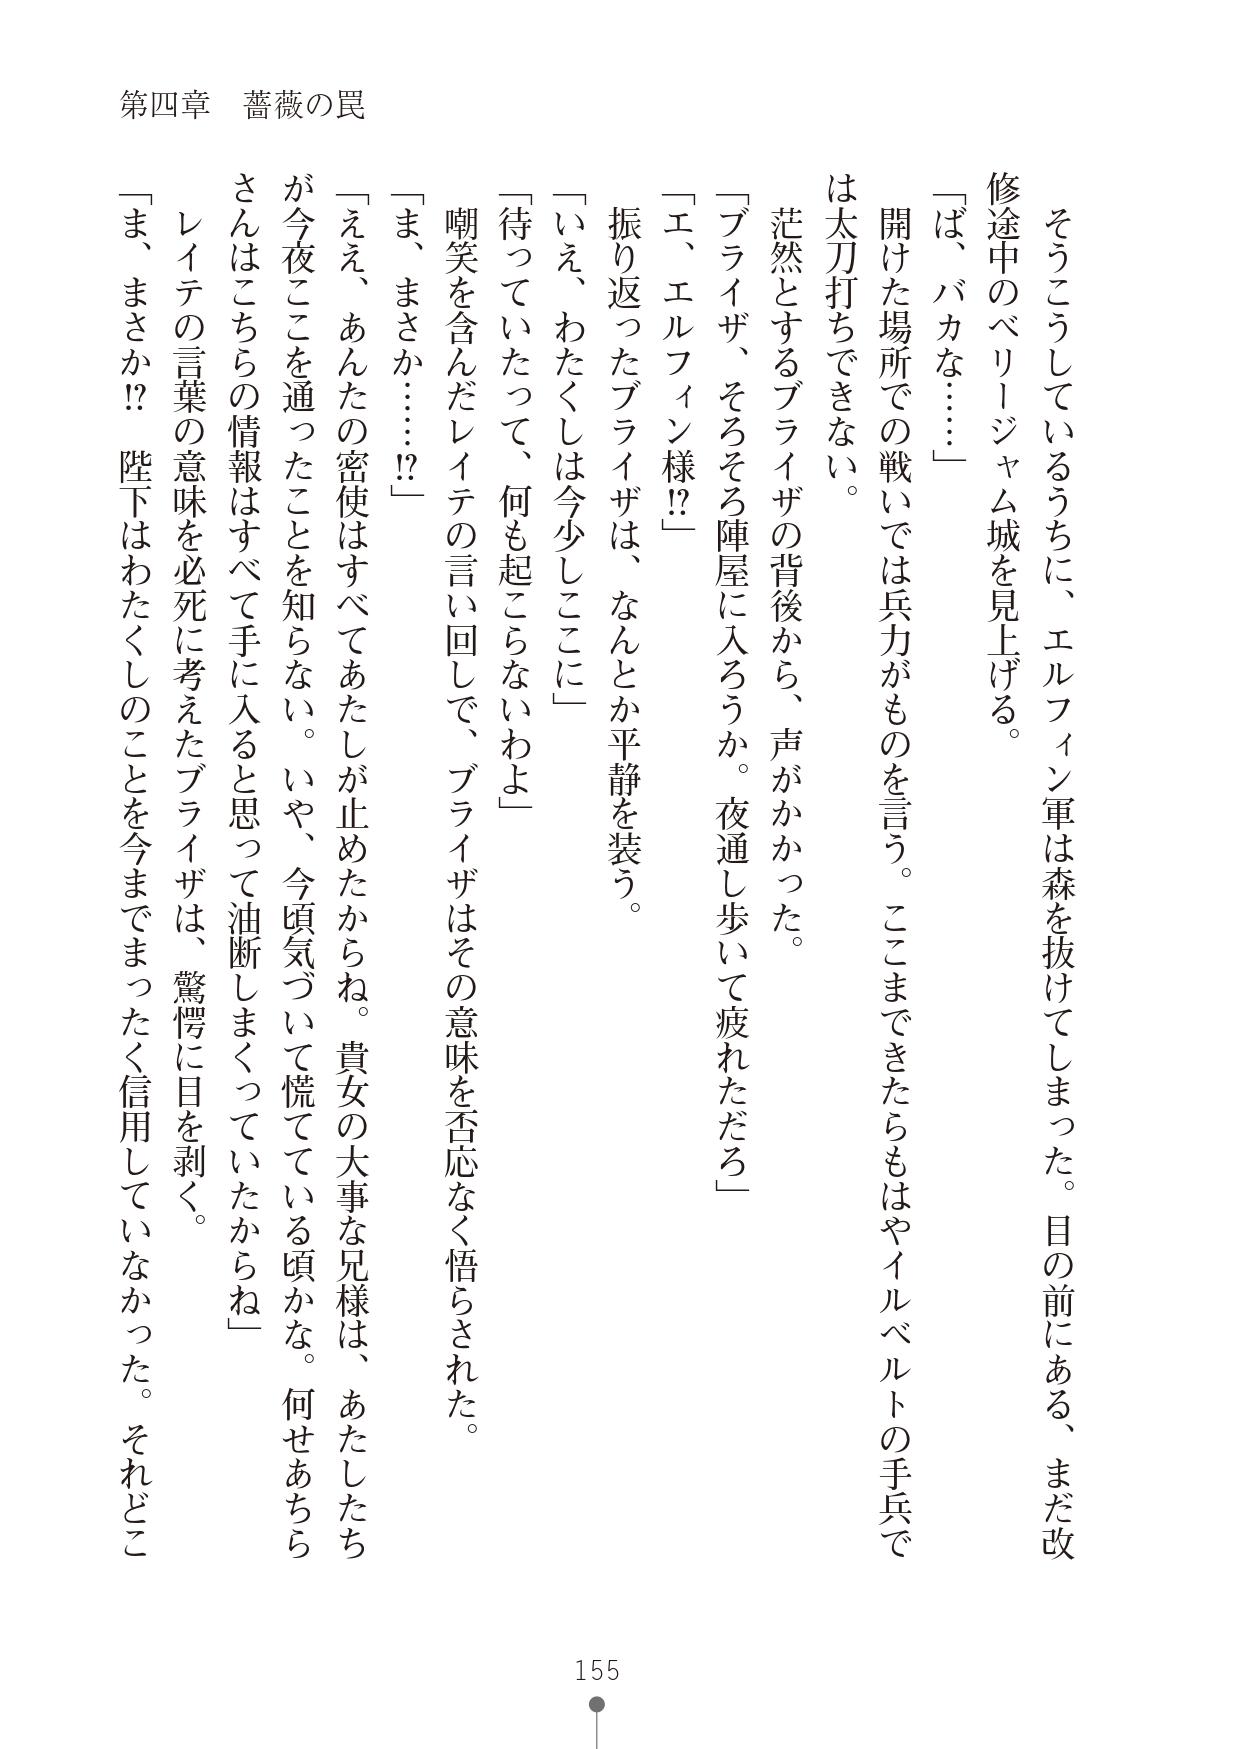 第四章　薔薇の罠
　そうこうしているうちに、エルフィン軍は森を抜けてしまった。目の前にある、まだ改
修途中のベリージャム城を見上げる。
「ば、バカな……」
　開けた場所での戦いでは兵力がものを言う。ここまできたらもはやイルベルトの手兵で
は太刀打ちできない。
　茫然とするブライザの背後から、声がかかった。
「ブライザ、そろそろ陣屋に入ろうか。夜通し歩いて疲れただろ」
「エ、エルフィン様!?」
　振り返ったブライザは、なんとか平静を装う。
「いえ、わたくしは今少しここに」
「待っていたって、何も起こらないわよ」
　嘲笑を含んだレイテの言い回しで、ブライザはその意味を否応なく悟らされた。
「ま、まさか……!?」
「ええ、あんたの密使はすべてあたしが止めたからね。貴女の大事な兄様は、あたしたち
が今夜ここを通ったことを知らない。いや、今頃気づいて慌てている頃かな。何せあちら
さんはこちらの情報はすべて手に入ると思って油断しまくっていたからね」
　レイテの言葉の意味を必死に考えたブライザは、驚愕に目を剥く。
「ま、まさか!?　陛下はわたくしのことを今までまったく信用していなかった。それどこ
155